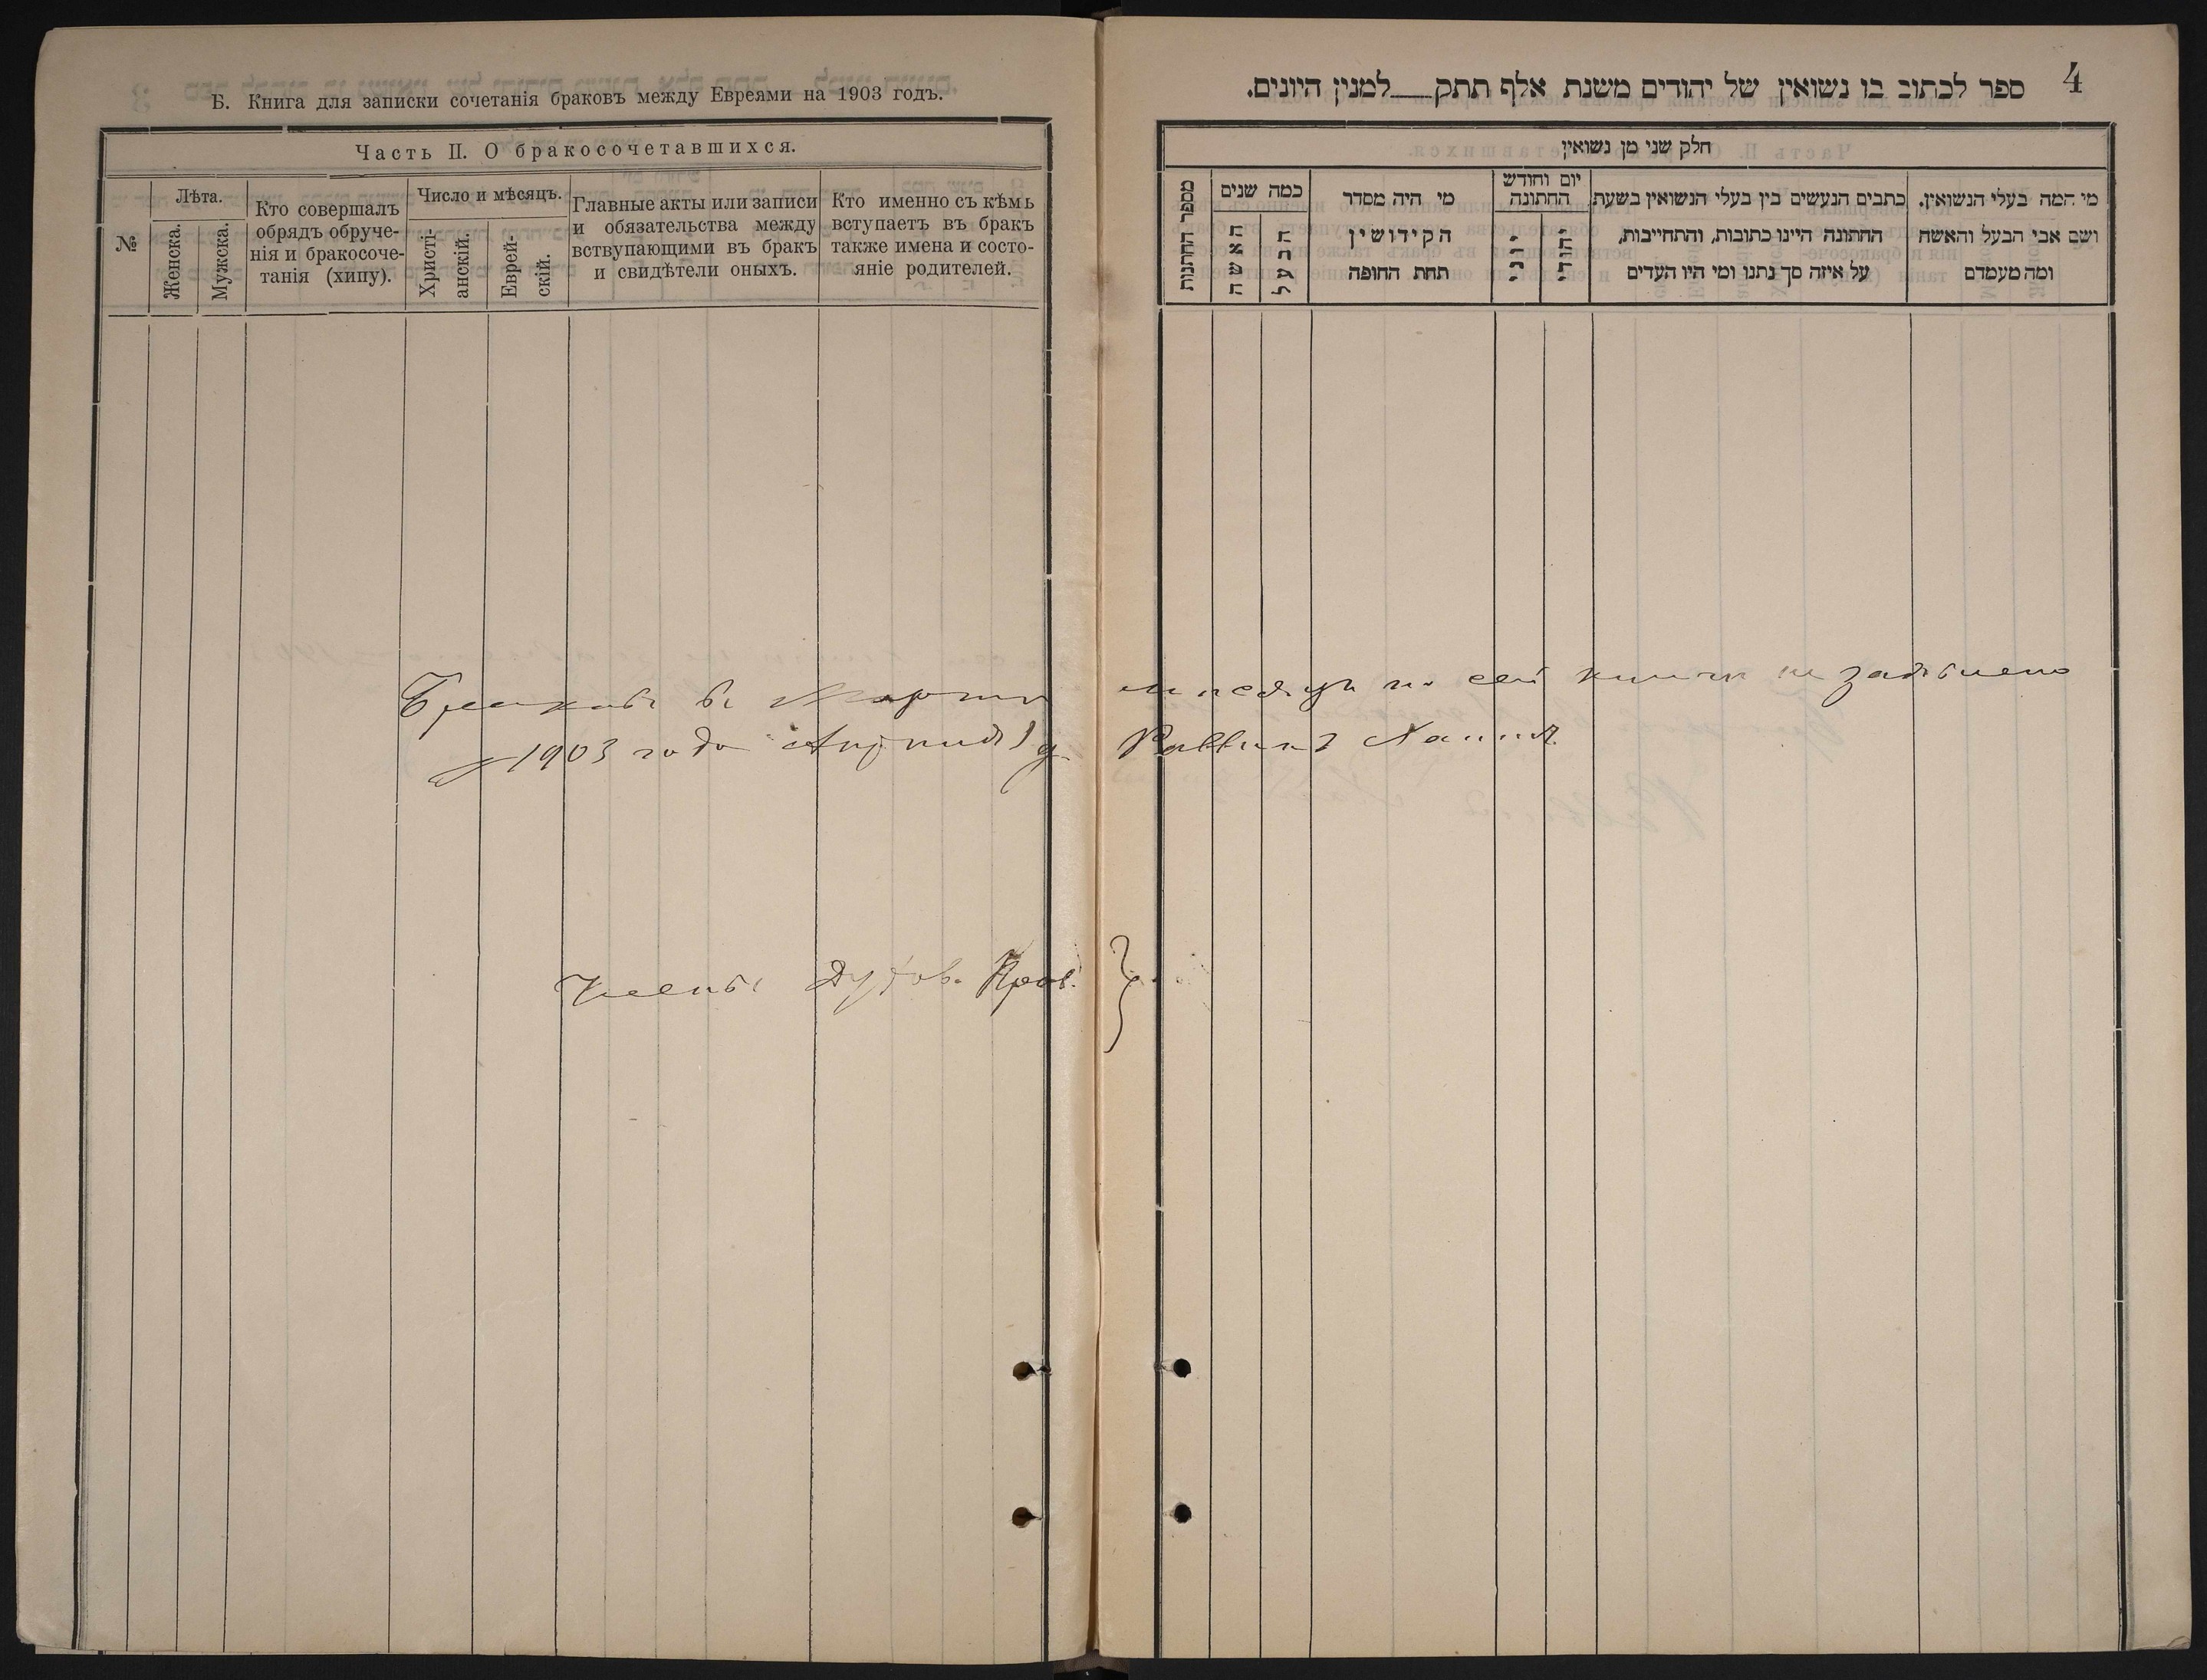 Б. Книга для записки сочетанія браковъ между Евреями на 1903 годъ.
Часть II. О бракосочетавшихся.
№
Лѣта.
Женска.
Мужска.
Кто совершалъ
обрядъ обруче-
нія и бракосоче-
танія (хипу).
Число и мѣсяцъ.
Христі-
анскій.
Еврей-
скій.
Главные акты или записи
и обязательства между
вствупающими въ бракъ
и свидѣтели оныхъ.
Кто именно съ кѣмъ
вступаетъ въ бракъ
также имена и состо-
яніе родителей.
4
ספר לכתוב בו נשואין של יהודים משנת אלף תתק למנין היונים.
חלק שני מן נשואין
מספר החתנות
כמה שנים
האשה
הבעל
מי היה מסדר
הקידושין
תחת החופה
יום וחודש
החתונה
יוני
יהודי
כתבים הנעשים בין בעלי הנשואין בשעת
החתונה היינו כתובות, והתחייבות,
על איזה סך נתנו ומי היו העדים
מי המה בעלי הנשואין,
ושם אבי הבעל והאשה
ומה מעמדם
Браковъ въ Мартѣ мѣсяцѣ по сей книгѣ не заявлено
1903 года Раввинъ
Члены Духов. Прав.